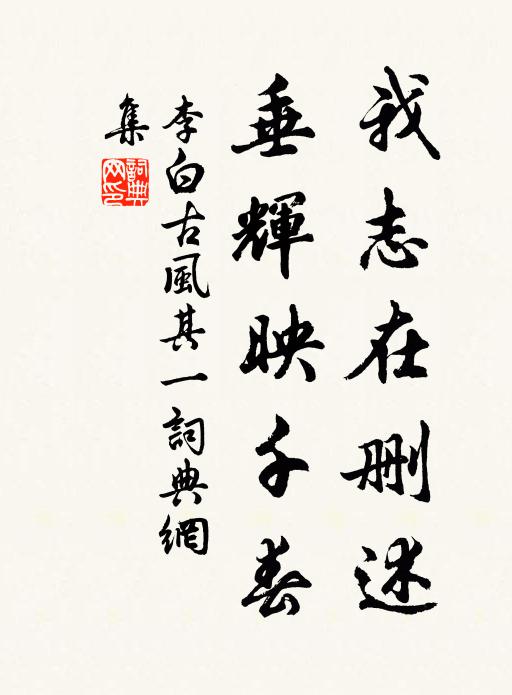 我志在删述
垂輝映千春
李白古風其一詞典網
集
詞典
网印